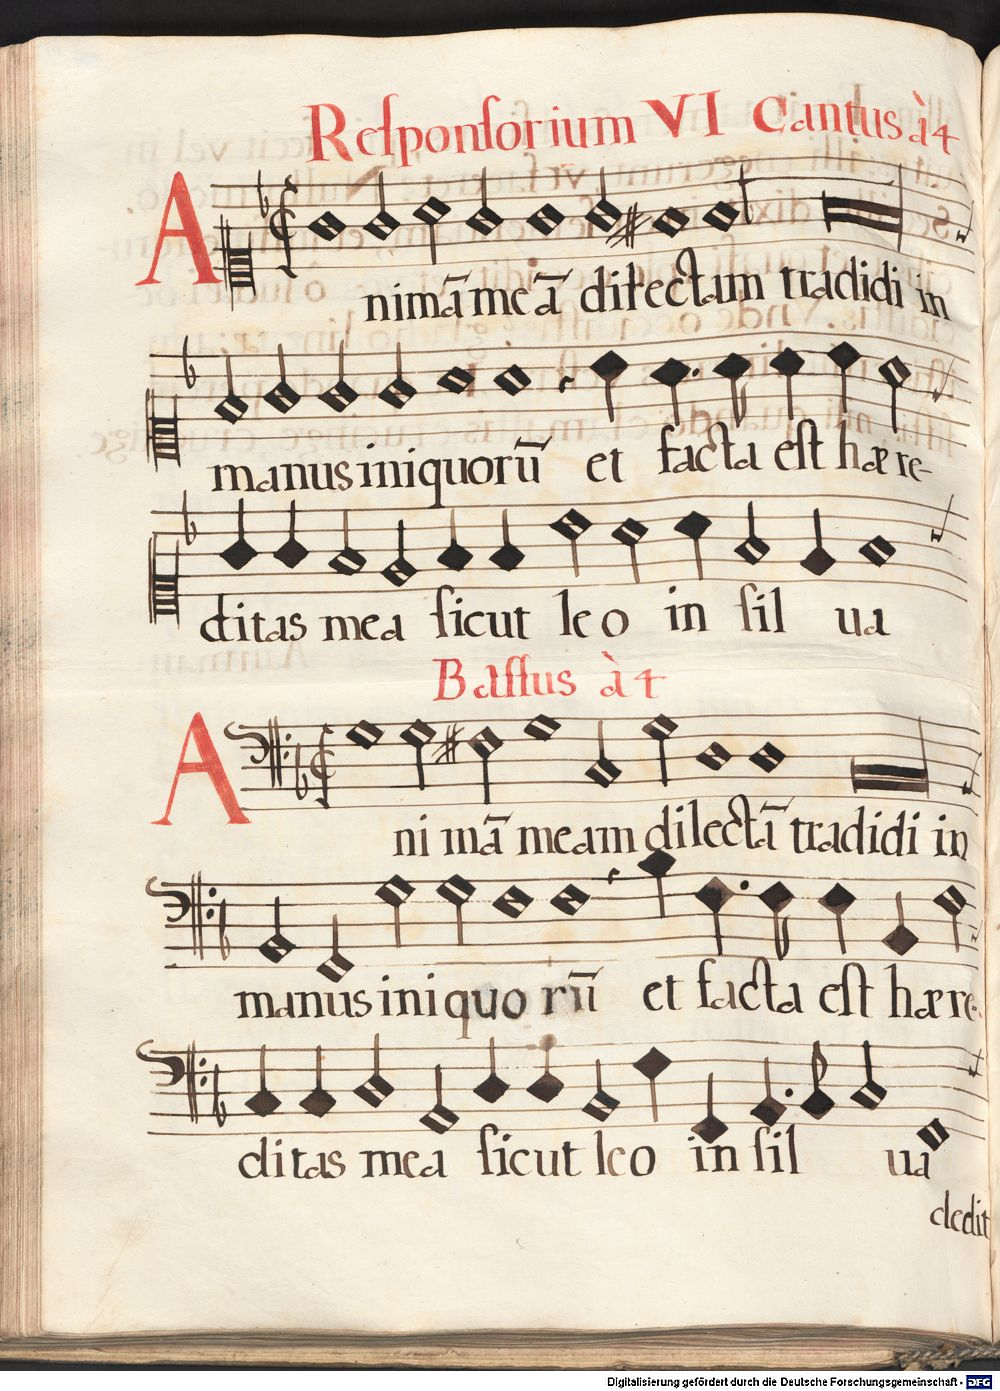 Reſponſorium VI Cantus à 4
A
nimā me ā dilectam tradidi in
manus iniquorū et facta est hære-
ditas mea ſicut leo in ſil ua
Baſſus à 4
A
ni mā meam dilectā tradidi in
manus iniquo rū et facta est hære-
ditas mea ſicut leo in ſil ua
dedit
Digitalisierung gefördert durch die Deutsche Forschungsgemeinschaft - DFG